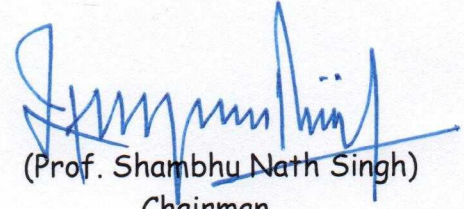 (Prof. Shambhu Nath Singh)
Chairman